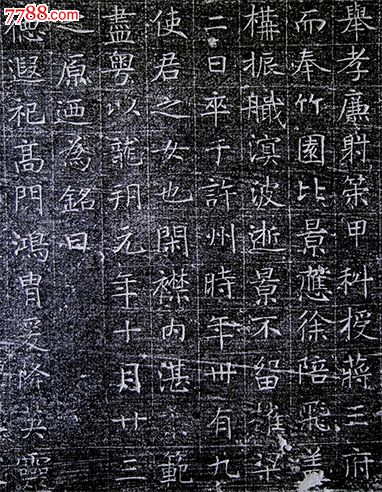 7788.com
舉孝廉射策甲科授蔣王府
而奉竹園比景應徐陪飛蓋
構振觀濱波逝景不留摧梁
二日卒于許州時年卌有九
使君之女也閑襟内湛範
盡粵以龍朔元年十月廿三
之原迺爲銘曰
德遐祀高門鴻胄爰降英靈